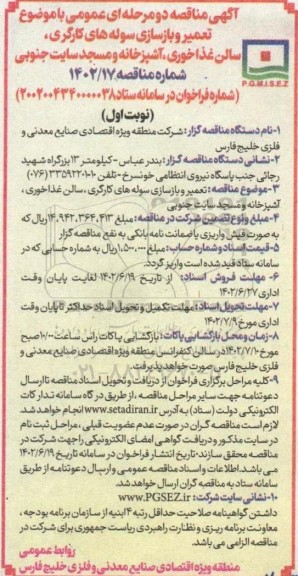 آگهی مناقصه دو مرحله ای عمومی با موضوع
تعمیر و بازسازی سوله های کارگری،
سالن غذاخوری، آشپزخانه و مسجد سایت جنوبی
شماره مناقصه ۱۴۰۲/۱۷
(شماره فراخوان در سامانه ستاد ۲۰۰۲۰۰۴۳۴۰۰۰۰۰۳۸)
(نوبت اول)
P.G.M.I.S.E.Z
۱-نام دستگاه مناقصه گزار: شرکت منطقه ویژه اقتصادی صنایع معدنی و
فلزی خلیج فارس
۲-نشانی دستگاه مناقصه گزار: بندرعباس-کیلومتر ۱۳ بزرگراه شهید
رجائی جنب پاسگاه نیروی انتظامی خونسرخ-تلفن ۳۳۵۹۲۲۰۱۰۱۰ (۰۷۶)
۳-موضوع مناقصه: تعمیر و بازسازی سوله های کارگری، سالن غذاخوری،
آشپزخانه و مسجد سایت جنوبی
۴-مبلغ و نوع تضمین شرکت در مناقصه: مبلغ ۱۴,۹۴۲,۳۶۴,۴۱۳ ریال که
به صورت فیش واریزی یا ضمانت نامه بانکی به نفع مناقصه گزار
۵-قیمت اسناد و شماره حساب: مبلغ ۱,۵۰۰,۰۰۰ ریال به شماره حسابی که در
سامانه ستاد قید شده است واریز گردد.
۶-مهلت فروش اسناد: از تاریخ ۱۴۰۲/۶/۱۹ لغایت پایان وقت
اداری ۱۴۰۲/۶/۲۷
۷-مهلت تحویل اسناد: مهلت تکمیل و تحویل اسناد حداکثر تا پایان وقت
اداری مورخ ۱۴۰۲/۷/۹
۸-زمان و محل بازگشایی پاکات: بازگشایی پاکات راس ساعت ۱۰/۰۰ صبح
مورخ ۱۴۰۲/۷/۱۰ در سالن کنفرانس منطقه ویژه اقتصادی صنایع معدنی و
فلزی خلیج فارس صورت خواهد پذیرفت.
۹-کلیه مراحل برگزاری فراخوان از دریافت و تحویل اسناد مناقصه تا ارسال
دعوتنامه جهت سایر مراحل مناقصه، از طریق درگاه سامانه تدارکات
الکترونیکی دولت (ستاد) به آدرس www.setadiran.ir انجام خواهد شد.
لازم است مناقصه گران در صورت عدم عضویت قبلی، مراحل ثبت نام
در سایت مذکور و دریافت گواهی امضای الکترونیکی را جهت شرکت در
مناقصه محقق سازند؛ تاریخ انتشار فراخوان در سامانه تاریخ ۱۴۰۲/۶/۱۹
می باشد. اطلاعات و اسناد مناقصه عمومی و ارسال دعوتنامه از طریق
سامانه ستاد به مناقصه گران ارسال خواهد شد.
۱۰-نشانی سایت شرکت: www.PGSEZ.ir
داشتن گواهینامه صلاحیت حداقل رتبه ۴ ابنیه از سازمان برنامه و بودجه،
معاونت برنامه ریزی و نظارت راهبردی ریاست جمهوری برای شرکت در
مناقصه الزامی می باشد.
روابط عمومی
منطقه ویژه اقتصادی صنایع معدنی و فلزی خلیج فارس